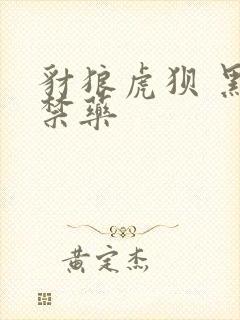 豺狼虎狈 黑
禁药
黄定杰